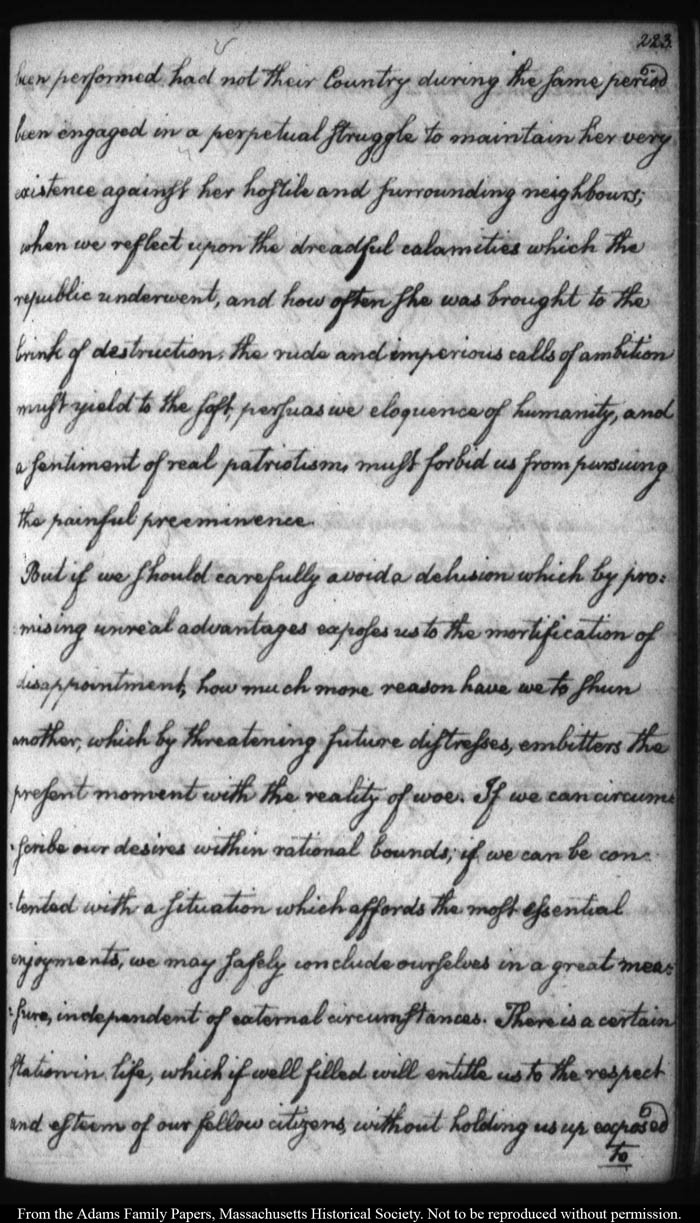 223.
been performed had not their Country during the same period
been engaged in a perpetual struggle to maintain her very
existence against her hostile and surrounding neighbours;
when we reflect upon the dreadful calamities which the
republic underwent, and how often she was brought to the
brink of destruction, the rude and imperious calls of ambition
must yield to the soft, persuasive eloquence of humanity, and
a sentiment of real patriotism, must forbid us from pursuing
the painful preeminence.
But if we should carefully avoid a delusion which by pro:
:mising unreal advantages exposes us to the mortification of
disappointment, how much more reason have we to shun
another, which by threatening future distresses, embitters the
present moment with the reality of woe. If we can circum:
:scribe our desires within rational bounds; if we can be con:
:tented with a situation which affords the most essential
enjoyments, we may safely conclude ourselves in a great mea:
:sure, independent of external circumstances. There is a certain
station in life, which if well filled will entitle us to the respect
and esteem of our fellow citizens, without holding us up exposed
to
From the Adams Family Papers, Massachusetts Historical Society. Not to be reproduced without permission.